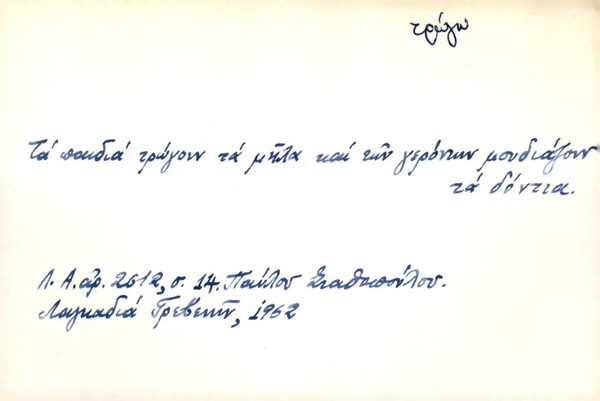 τρώγω
Τά παιδιά τρώγουν τά μῆλα καί τῶν γερόντων μουδιάζουν
τά δόντια.
Λ. Α. ἀρ. 2612, σ. 14. Παύλου Σταθοπούλου.
Λαγκαδιά Γρεβενῶν, 1962